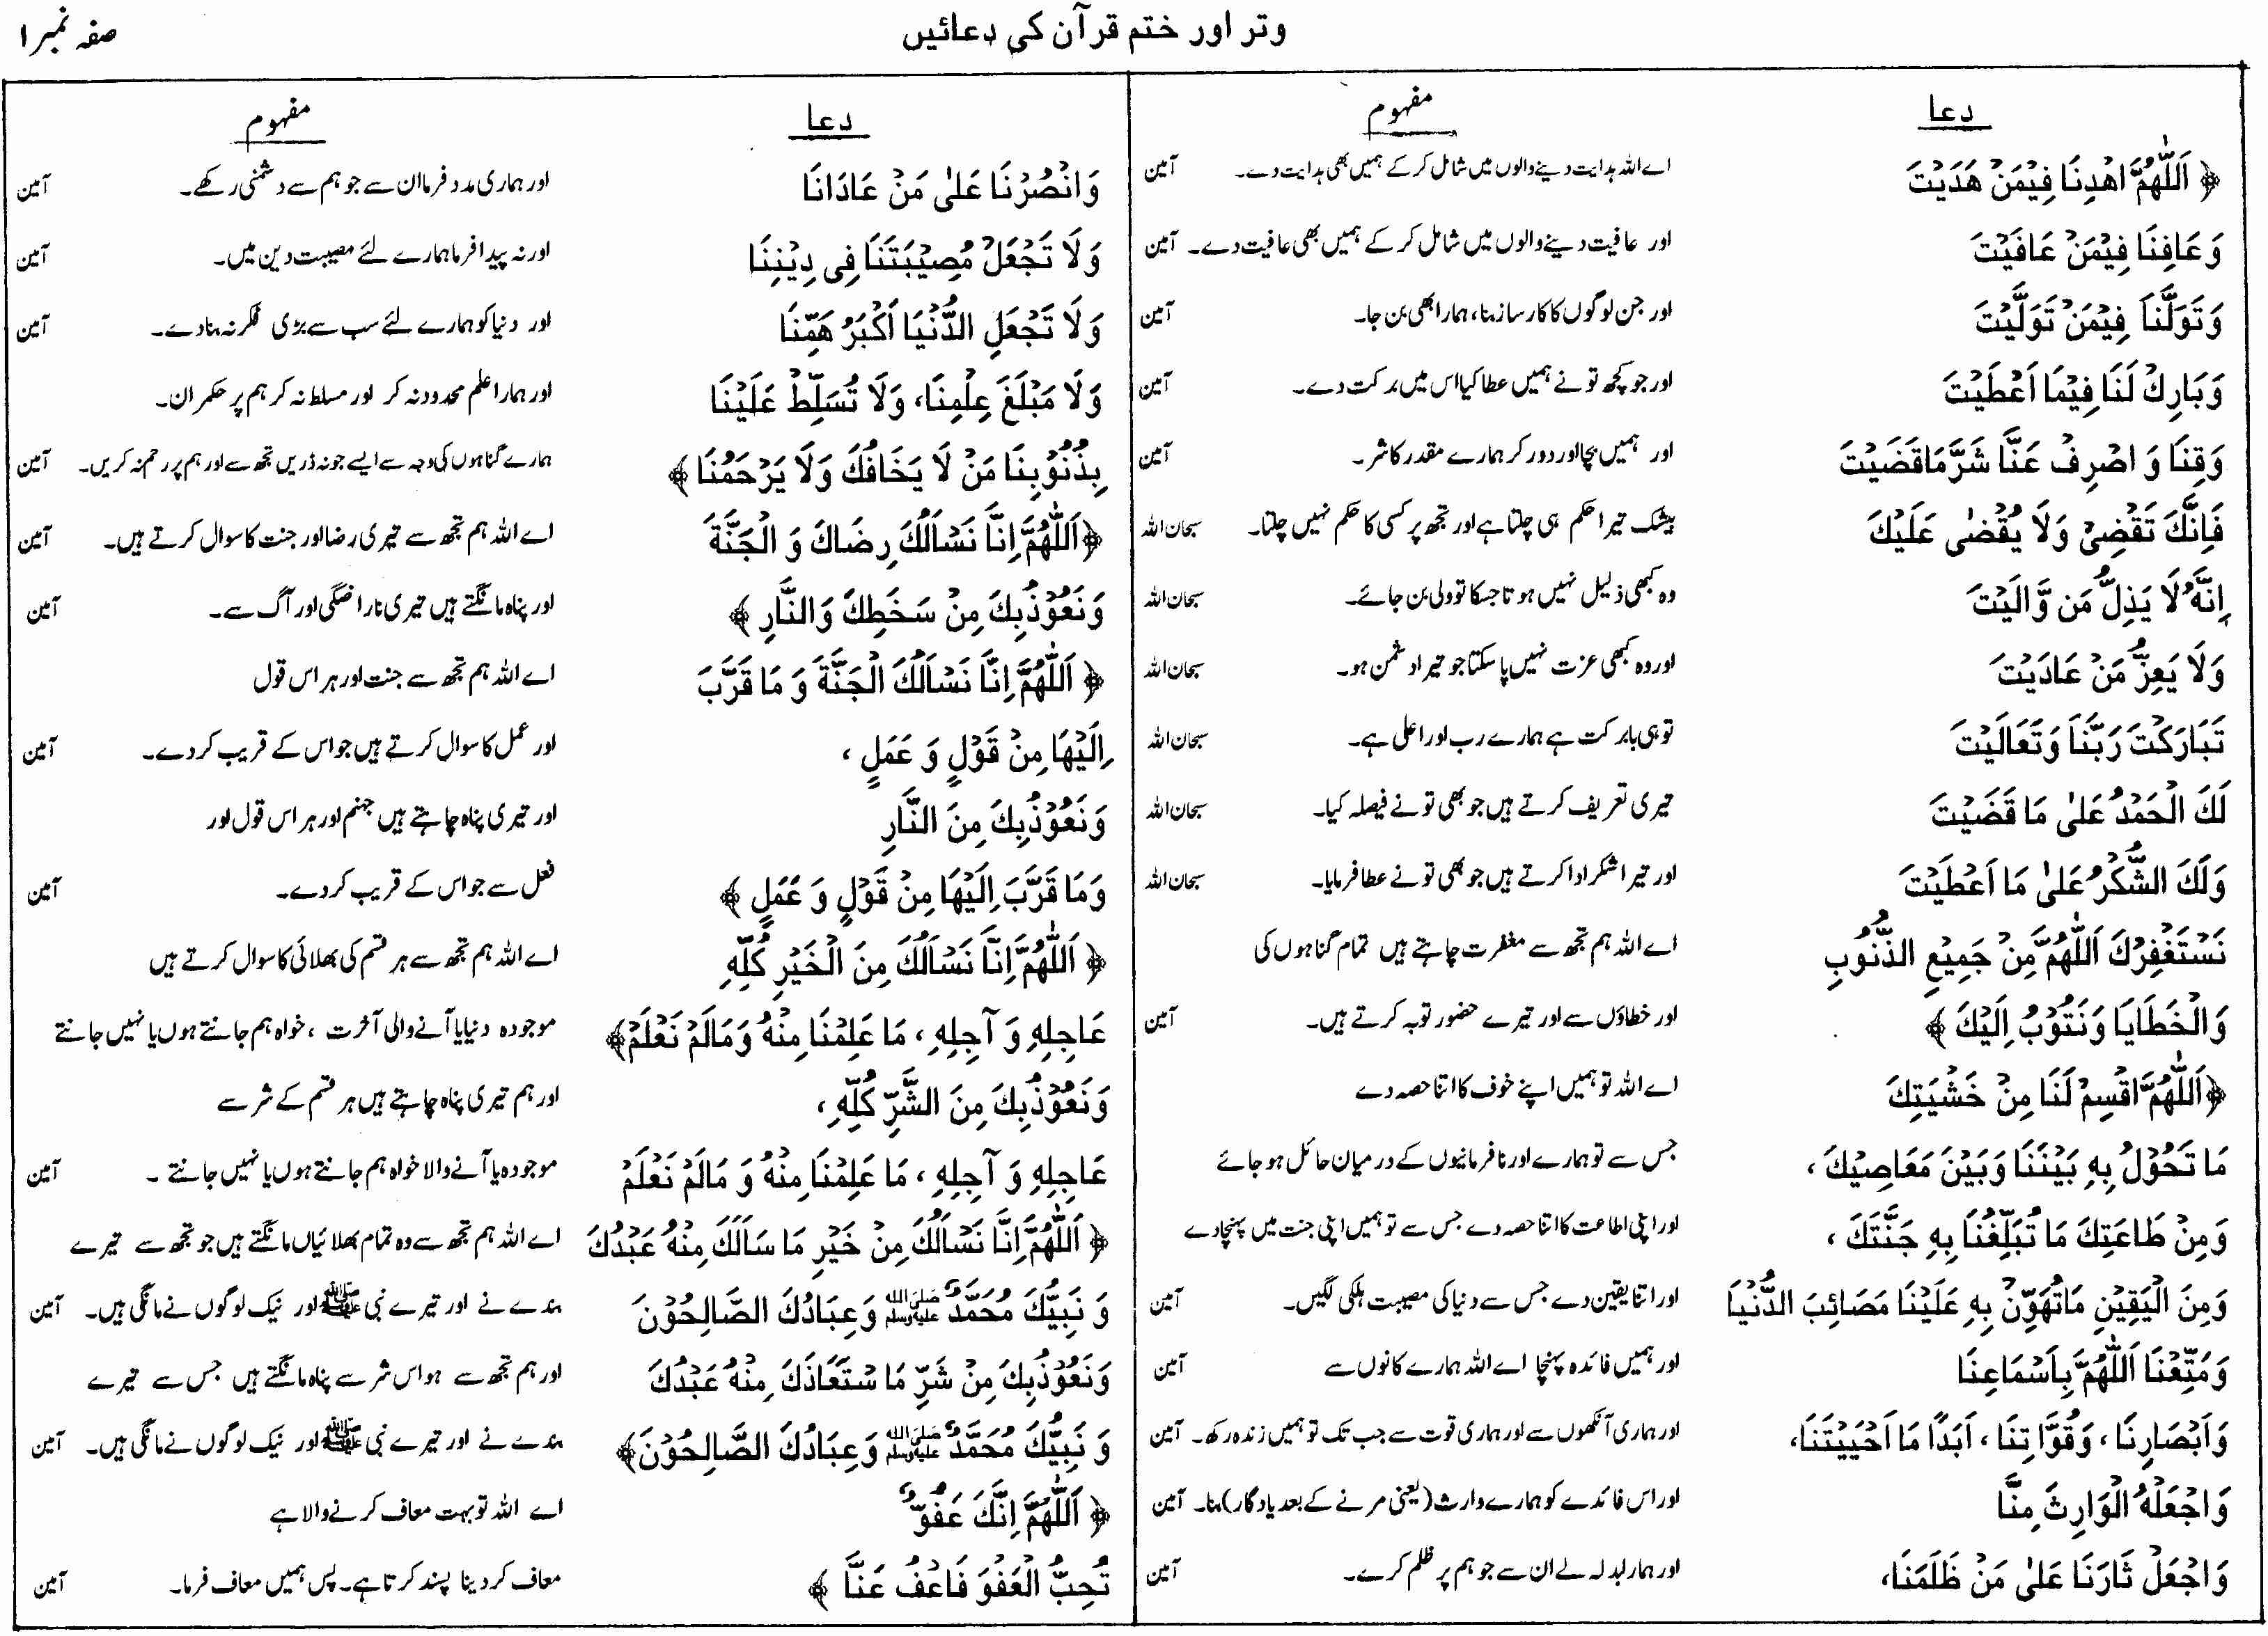 وتر اور ختم قرآن کی دعائیں
صفہ نمبر ۱
دعا مفہوم
﴿ اَللّٰهُمَّ اهْدِنَا فِيْمَنْ هَدَيْتَ اے اللہ ہدایت دینے والوں میں شامل کر کے ہمیں بھی ہدایت دے۔ آمین
وَ عَافِنَا فِيْمَنْ عَافَيْتَ اور عافیت دینے والوں میں شامل کر کے ہمیں بھی عافیت دے۔ آمین
وَتَوَلَّنَا فِيْمَنْ تَوَلَّيْتَ اور جن لوگوں کا کارساز بنا، ہمارا بھی بن جا۔ آمین
وَبَارِكْ لَنَا فِيْمَا اَعْطَيْتَ اور جو کچھ تو نے ہمیں عطا کیا اس میں برکت دے۔ آمین
وَقِنَا وَ اصْرِفْ عَنَّا شَرَّمَا قَضَيْتَ اور ہمیں بچا اور دور کر ہمارے مقدر کا شر۔ آمین
فَاِنَّكَ تَقْضِىْ وَلَا يُقْضٰى عَلَيْكَ بیشک تیرا حکم ہی چلتا ہے اور تجھ پر کسی کا حکم نہیں چلتا۔ سبحان اللہ
اِنَّهُ لَا يَذِلُّ مَن وَّالَيْتَ وہ کبھی ذلیل نہیں ہوتا جسکا تو ولی بن جائے۔ سبحان اللہ
وَلَا يَعِزُّ مَنْ عَادَيْتَ اور وہ کبھی عزت نہیں پا سکتا جو تیرا دشمن ہو۔ سبحان اللہ
تَبَارَكْتَ رَبَّنَا وَتَعَالَيْتَ تو ہی بابرکت ہے ہمارے رب اور اعلی ہے۔ سبحان اللہ
لَكَ الْحَمْدُ عَلىٰ مَا قَضَيْتَ تیری تعریف کرتے ہیں جو بھی تو نے فیصلہ کیا۔ سبحان اللہ
وَلَكَ الشُّكْرُ عَلىٰ مَا اَعْطَيْتَ اور تیرا شکر ادا کرتے ہیں جو بھی تو نے عطا فرمایا۔ سبحان اللہ
نَسْتَغْفِرُكَ اَللّٰهُمَّ مِنْ جَمِيْعِ الذُّنُوْبِ اے اللہ ہم تجھ سے مغفرت چاہتے ہیں تمام گناہوں کی
وَالْخَطَايَا وَنَتُوْبُ اِلَيْكَ ﴾ اور خطاؤں سے اور تیرے حضور توبہ کرتے ہیں۔ آمین
﴿اَللّٰهُمَّ اقْسِمْ لَنَا مِنْ خَشْيَتِكَ اے اللہ تو ہمیں اپنے خوف کا اتنا حصہ دے
مَا تَحُوْلُ بِهِ بَيْنَنَا وَبَيْنَ مَعَاصِيْكَ ، جس سے تو ہمارے اور نافرمانیوں کے درمیان حائل ہو جائے
وَمِنْ طَاعَتِكَ مَا تُبَلِّغُنَا بِهِ جَنَّتَكَ ، اور اپنی اطاعت کا اتنا حصہ دے جس سے تو ہمیں اپنی جنت میں پہنچا دے
وَمِنَ الْيَقِيْنِ مَا تُهَوِّنُ بِهِ عَلَيْنَا مَصَائِبَ الدُّنْيَا اور اتنا یقین دے جس سے دنیا کی مصیبت ہلکی لگیں۔ آمین
وَمَتِّعْنَا اَللّٰهُمَّ بِاَسْمَاعِنَا اور ہمیں فائدہ پہنچا اے اللہ ہمارے کانوں سے آمین
وَاَبْصَارِنَا ، وَقُوَّاتِنَا ، اَبَدًا مَا اَحْيَيْتَنَا، اور ہماری آنکھوں سے اور ہماری قوت سے جب تک تو ہمیں زندہ رکھ۔ آمین
وَاجْعَلْهُ الْوَارِثَ مِنَّا اور اس فائدے کو ہمارے وارث (یعنی مرنے کے بعد یادگار) بنا۔ آمین
وَاجْعَلْ ثَارَنَا عَلىٰ مَنْ ظَلَمَنَا، اور ہمارا بدلہ لے ان سے جو ہم پر ظلم کرے۔ آمین
دعا مفہوم
وَانْصُرْنَا عَلىٰ مَنْ عَادَانَا اور ہماری مدد فرما ان سے جو ہم سے دشمنی رکھے۔ آمین
وَلَا تَجْعَلْ مُصِيْبَتَنَا فِى دِيْنِنَا اور نہ پیدا فرما ہمارے لئے مصیبت دین میں۔ آمین
وَلَا تَجْعَلِ الدُّنْيَا اَكْبَرُ هَمِّنَا اور دنیا کو ہمارے لئے سب سے بڑی فکر نہ بنا دے۔ آمین
وَلَا مَبْلَغَ عِلْمِنَا، وَلَا تُسَلِّطْ عَلَيْنَا اور ہمارا علم محدود نہ کر اور مسلط نہ کر ہم پر حکمران۔
بِذُنُوْبِنَا مَنْ لَا يَخَافُكَ وَلَا يَرْحَمُنَا ﴾ ہمارے گناہوں کی وجہ سے ایسے جو نہ ڈریں تجھ سے اور ہم پر رحم نہ کریں۔ آمین
﴿اَللّٰهُمَّ اِنَّا نَسْاَلُكَ رِضَاكَ وَ الْجَنَّةَ اے اللہ ہم تجھ سے تیری رضا اور جنت کا سوال کرتے ہیں۔ آمین
وَنَعُوْذُبِكَ مِنْ سَخَطِكَ وَالنَّارِ ﴾ اور پناہ مانگتے ہیں تیری ناراضگی اور آگ سے۔ آمین
﴿ اَللّٰهُمَّ اِنَّا نَسْاَلُكَ الْجَنَّةَ وَ مَا قَرَّبَ اے اللہ ہم تجھ سے جنت اور ہر اس قول
اِلَيْهَا مِنْ قَوْلٍ وَ عَمَلٍ ، اور عمل کا سوال کرتے ہیں جو اس کے قریب کر دے۔ آمین
وَنَعُوْذُبِكَ مِنَ النَّارِ اور تیری پناہ چاہتے ہیں جہنم اور ہر اس قول اور
وَمَا قَرَّبَ اِلَيْهَا مِنْ قَوْلٍ وَ عَمَلٍ ﴾ فعل سے جو اس کے قریب کر دے۔ آمین
﴿ اَللّٰهُمَّ اِنَّا نَسْاَلُكَ مِنَ الْخَيْرِ كُلِّهِ اے اللہ ہم تجھ سے ہر قسم کی بھلائی کا سوال کرتے ہیں
عَاجِلِهِ وَ آجِلِهِ ، مَا عَلِمْنَا مِنْهُ وَمَالَمْ نَعْلَمْ﴾ موجودہ دنیا یا آنے والی آخرت ، خواہ ہم جانتے ہوں یا نہیں جانتے
وَنَعُوْذُبِكَ مِنَ الشَّرِّ كُلِّهِ ، اور ہم تیری پناہ چاہتے ہیں ہر قسم کے شر سے
عَاجِلِهِ وَ آجِلِهِ ، مَا عَلِمْنَا مِنْهُ وَ مَالَمْ نَعْلَمْ موجودہ یا آنے والا خواہ ہم جانتے ہوں یا نہیں جانتے ۔ آمین
﴿ اَللّٰهُمَّ اِنَّا نَسْاَلُكَ مِنْ خَيْرِ مَا سَاَلَكَ مِنْهُ عَبْدُكَ اے اللہ ہم تجھ سے وہ تمام بھلائیاں مانگتے ہیں جو تجھ سے تیرے
وَ نَبِيُّكَ مُحَمَّدٌ ﷺ وَعِبَادُكَ الصَّالِحُوْنَ بندے نے اور تیرے نبی ﷺ اور نیک لوگوں نے مانگی ہیں۔ آمین
وَنَعُوْذُبِكَ مِنْ شَرِّ مَا سْتَعَاذَكَ مِنْهُ عَبْدُكَ اور ہم تجھ سے ہو اس شر سے پناہ مانگتے ہیں جس سے تیرے
وَ نَبِيُّكَ مُحَمَّدٌ ﷺ وَعِبَادُكَ الصَّالِحُوْنَ﴾ بندے نے اور تیرے نبی ﷺ اور نیک لوگوں نے مانگی ہیں۔ آمین
﴿ اَللّٰهُمَّ اِنَّكَ عَفُوٌّ اے اللہ تو بہت معاف کرنے والا ہے
تُحِبُّ الْعَفْوَ فَاعْفُ عَنَّا ﴾ معاف کر دینا پسند کرتا ہے۔ پس ہمیں معاف فرما۔ آمین